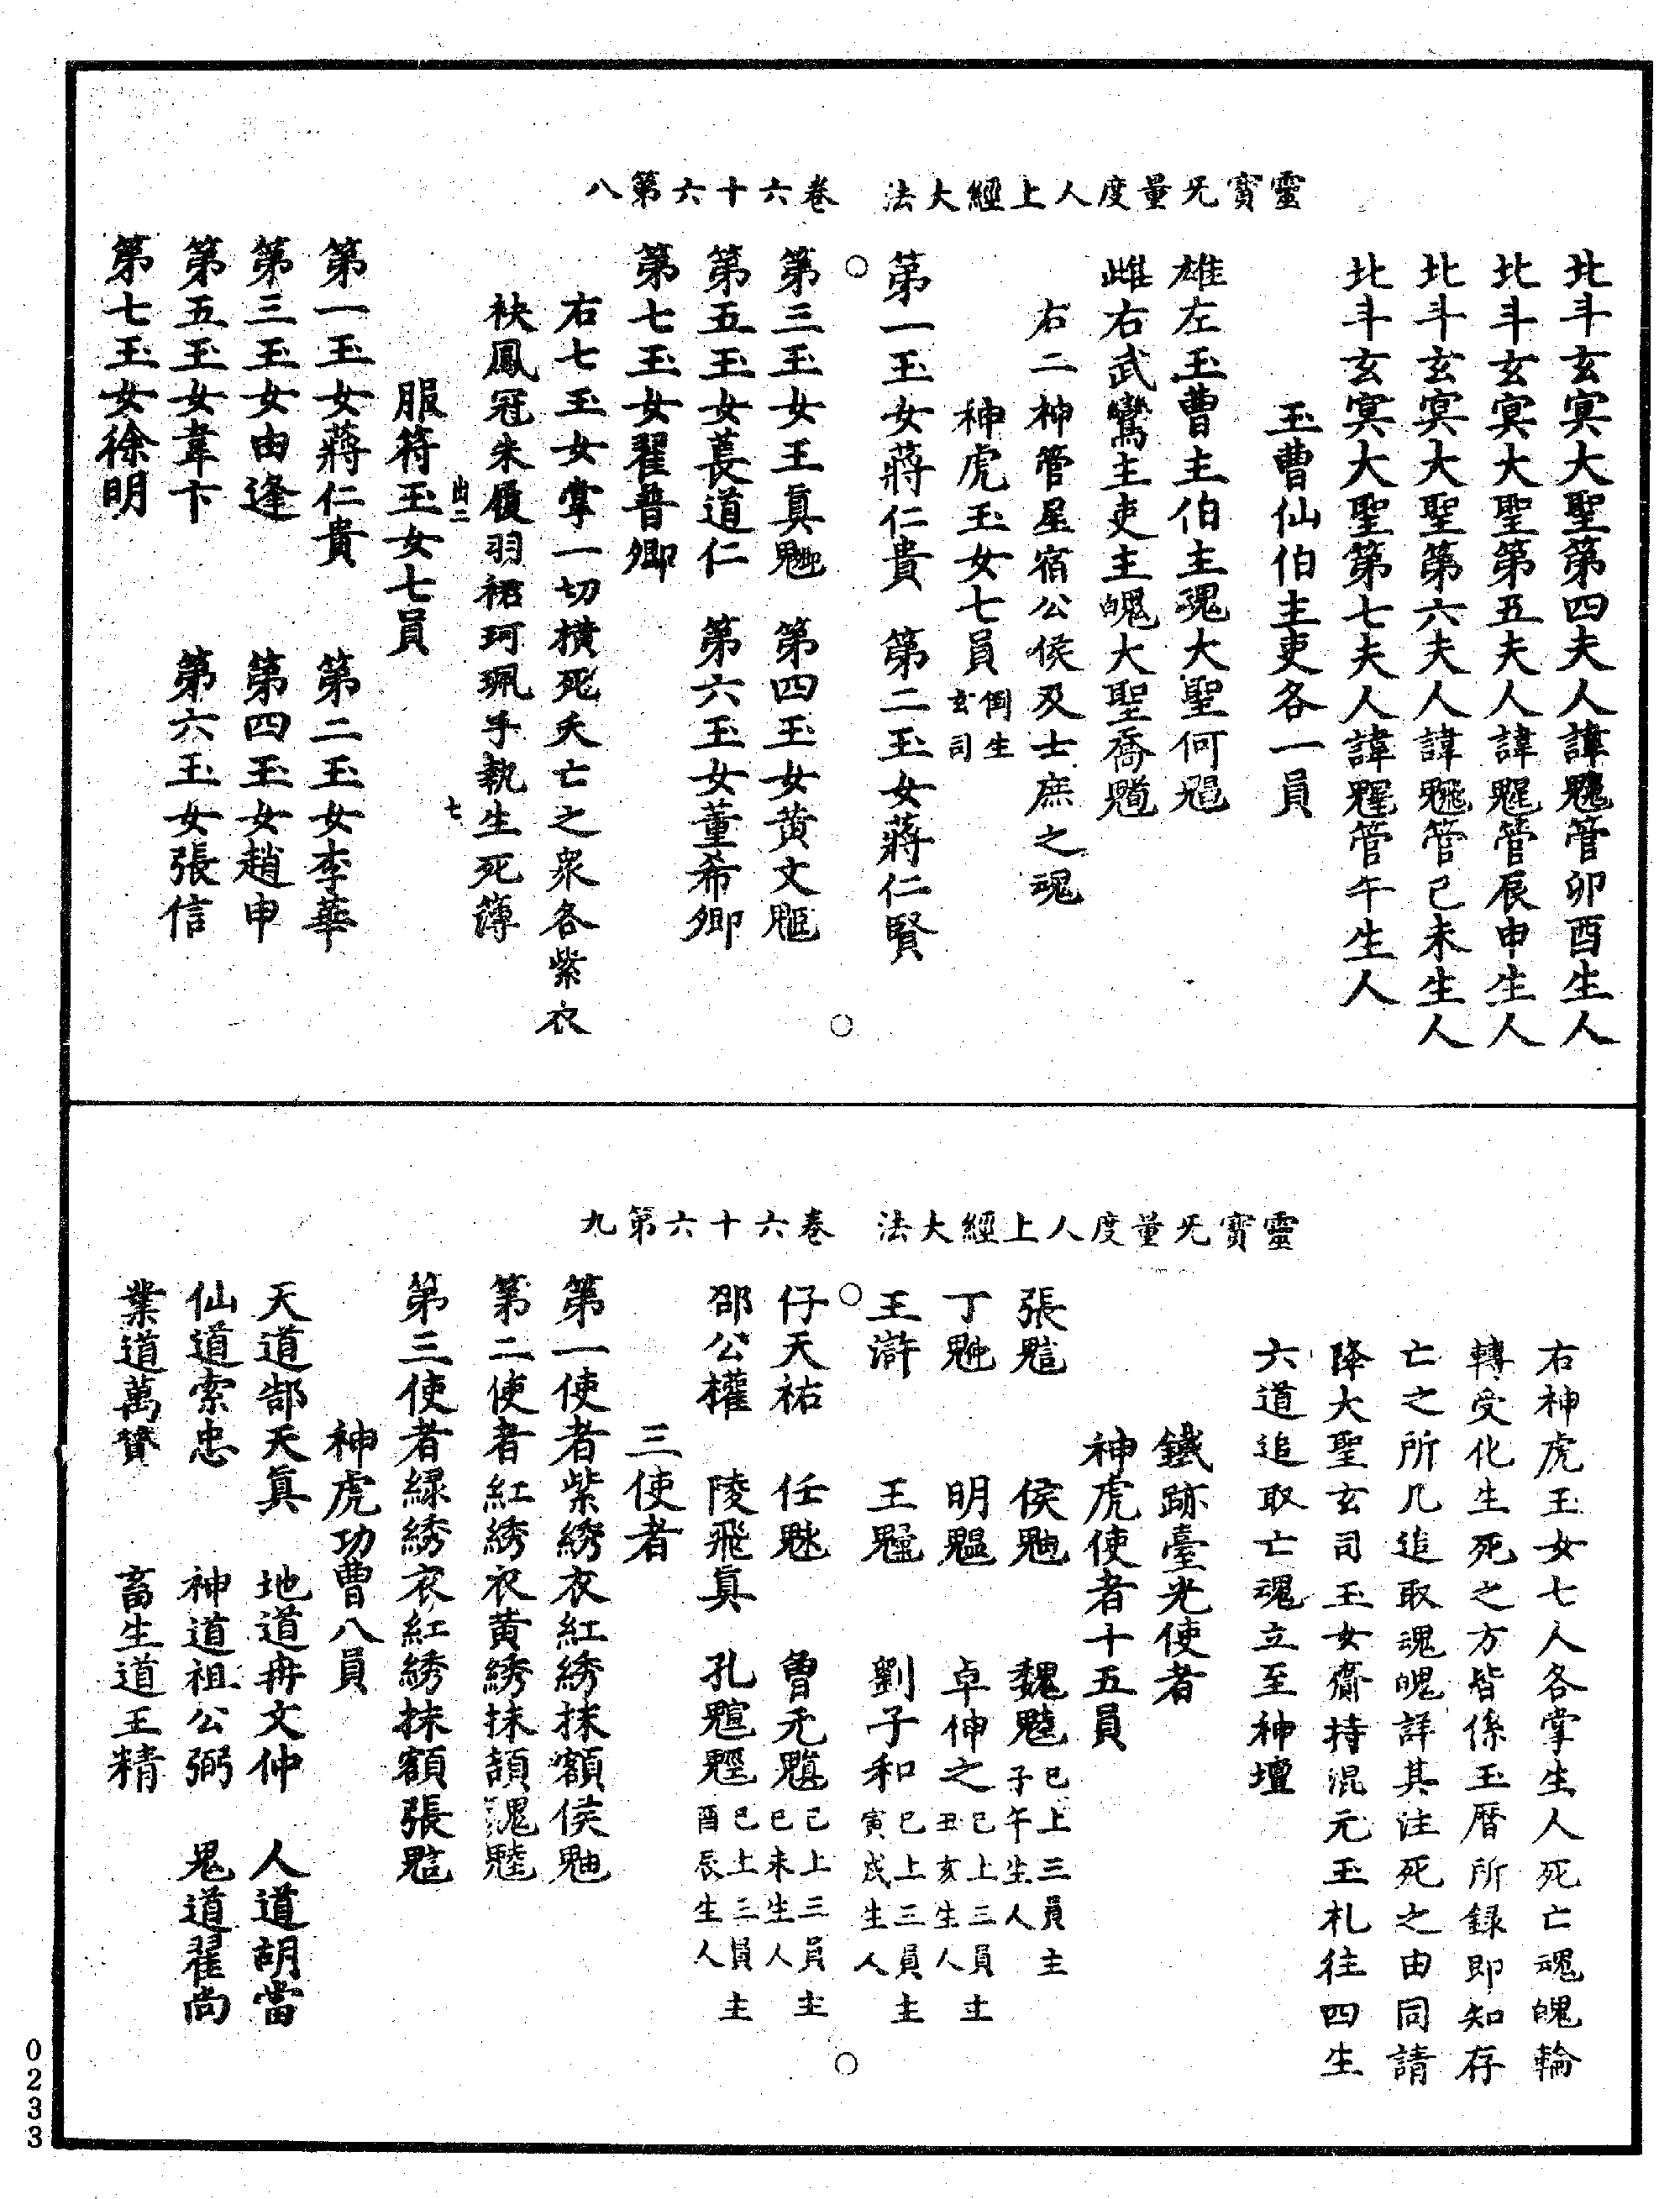 靈寳无量度人上經大法　卷六十六第八
北斗玄冥大聖第四夫人諱管卯酉生人
北斗玄冥大聖第五夫人諱管辰申生人
北斗玄冥大聖第六夫人諱管已未生人
北斗玄冥大聖第七夫人諱管午生人
玉曹仙伯主吏各一員
雄左玉曹主伯主魂大聖何
雌右武鸞主吏主魄大聖喬
右二神管星宿公侯及士庶之魂
神虎玉女七員倒生玄司
第一玉女蔣仁貴　第二玉女蔣仁賢
第三玉女王眞　第四玉女黄文
第五玉女萇道仁　第六玉女董希卿
第七玉女翟普卿
右七玉女掌一切横死夭亡之衆各紫衣
袂鳳冠朱履羽裙珂珮手執生死薄
服符玉女七員
出二　七
第一玉女蔣仁貴　第二玉女李華
第三玉女由逢　第四玉女趙申
第五玉女韋卞　第六玉女張信
第七玉女徐明
靈寳无量度人上經大法　卷六十六第九
右神虎玉女七人各掌生人死亡魂魄輪
轉受化生死之方皆係玉曆所録即知存
亡之所凡追取魂魄詳其注死之由同請
降大聖玄司玉女齎持混元玉札往四生
六道追取亡魂立至神壇
鐵跡臺光使者
神虎使者十五員
張　侯　魏　已上三員主子午生人
丁　明　卓伸之　已上三員主丑亥生人
王滸　王　劉子和　已上三員主寅戌生人
仔天祐　任　曾无　已上三員主巳未生人
邵公權　陵飛眞　孔　已上三員主酉辰生人
三使者
第一使者紫綉衣紅綉抹額侯
第二使者紅綉衣黄綉抹額
第三使者緑綉衣紅綉抹額張
神虎功曹八員
天道郜天眞　地道冉文仲　人道胡當
仙道索忠　神道祖公弼　鬼道翟尚
業道萬贇　畜生道王精
0233